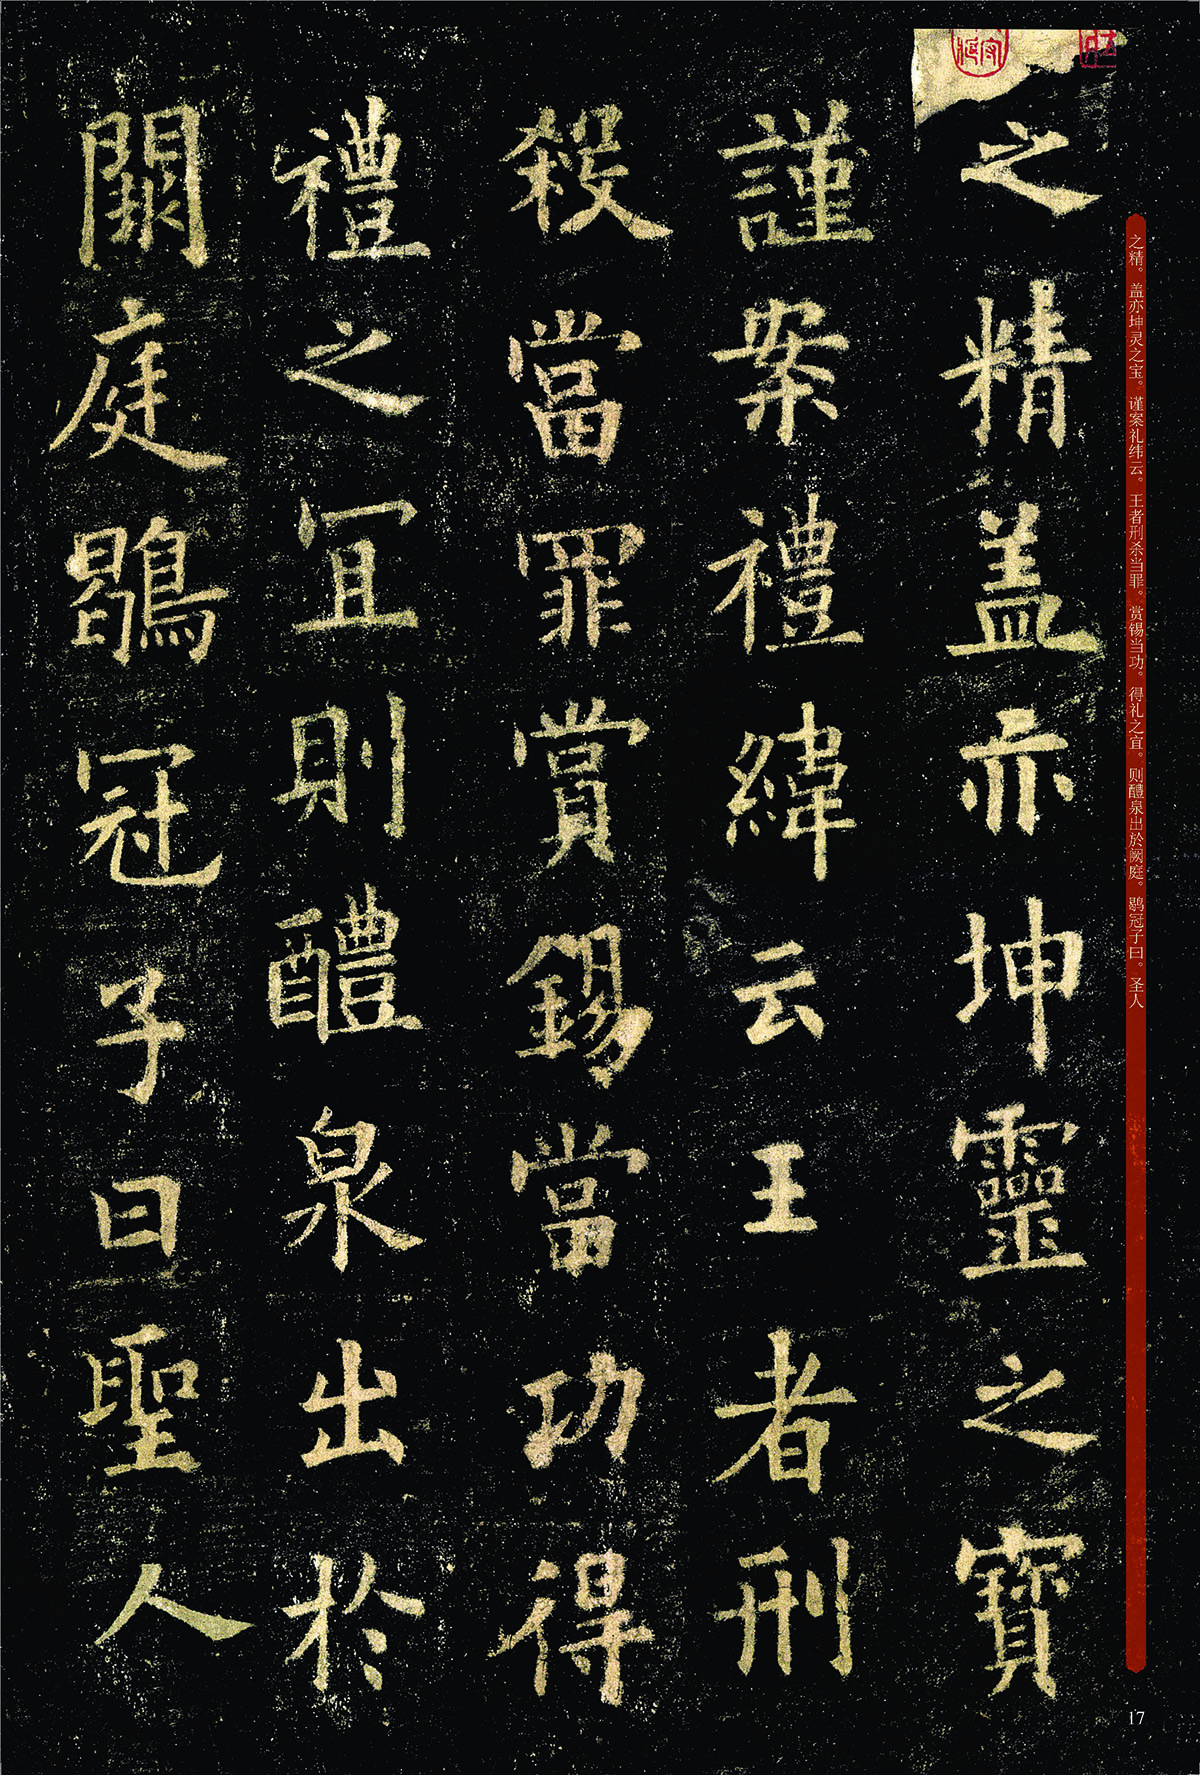 之精。盖亦坤灵之宝。谨案礼纬云。王者刑杀当罪。赏锡当功。得礼之宜。则醴泉出於阙庭。鹖冠子曰。圣人
之精盖亦坤靈之寶
謹案禮緯云王者刑
殺當罪賞錫當功得
禮之冝則醴泉出於
闕庭鶡冠子曰聖人
17